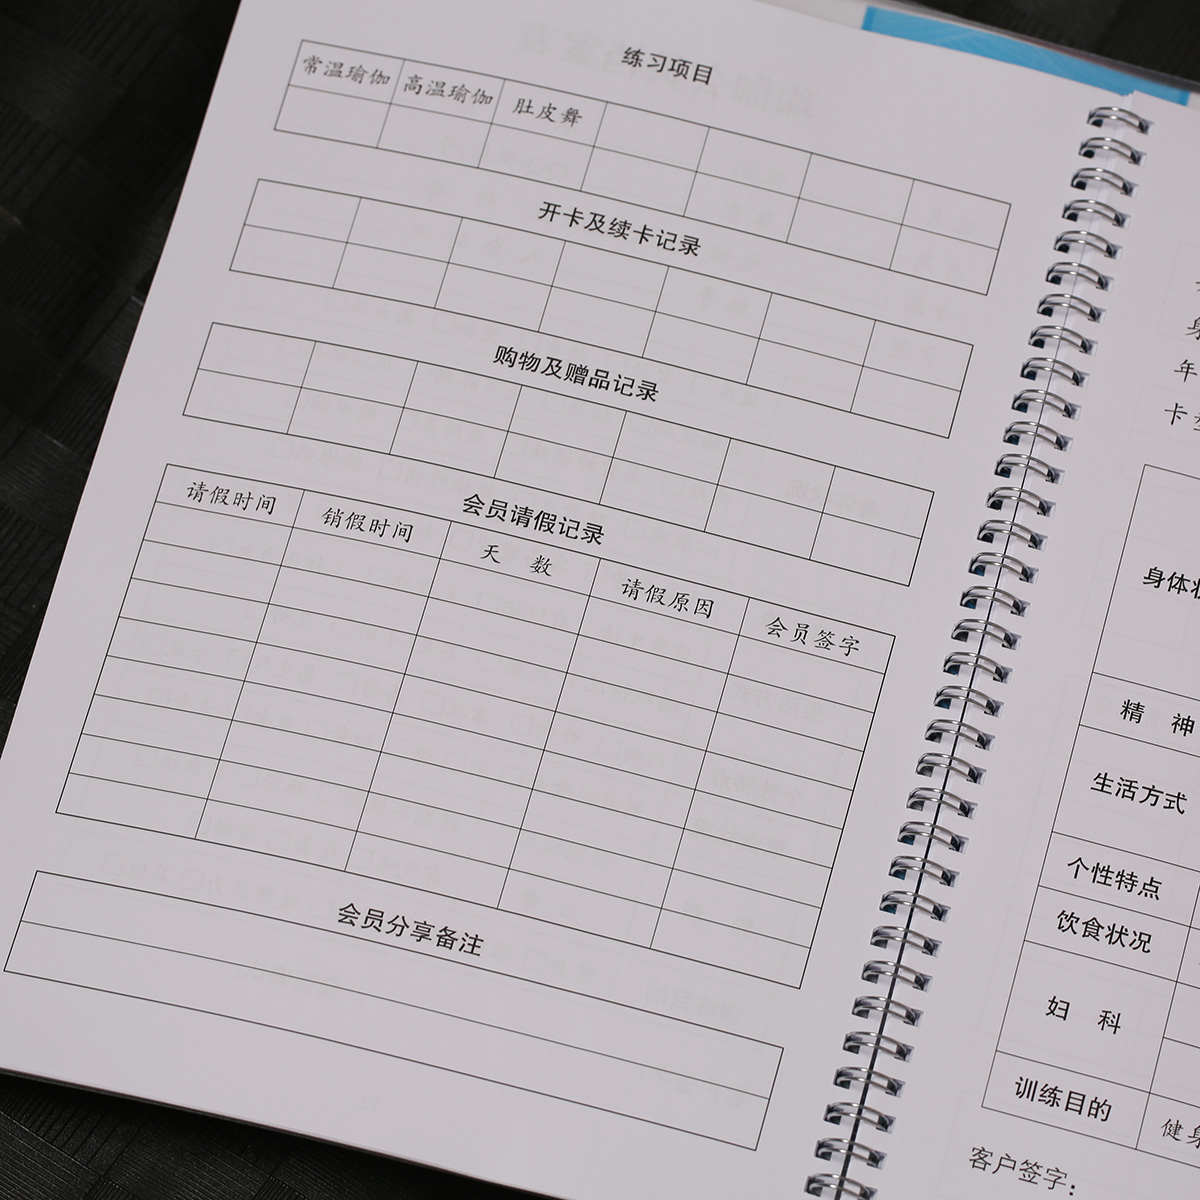 练习项目
常温瑜伽 高温瑜伽 肚皮舞
开卡及续卡记录
购物及赠品记录
会员请假记录
请假时间 销假时间 天 数 请假原因 会员签字
会员分享备注
年
卡
身体
精 神
生活方式
个性特点
饮食状况
妇 科
训练目的 健身
客户签字：